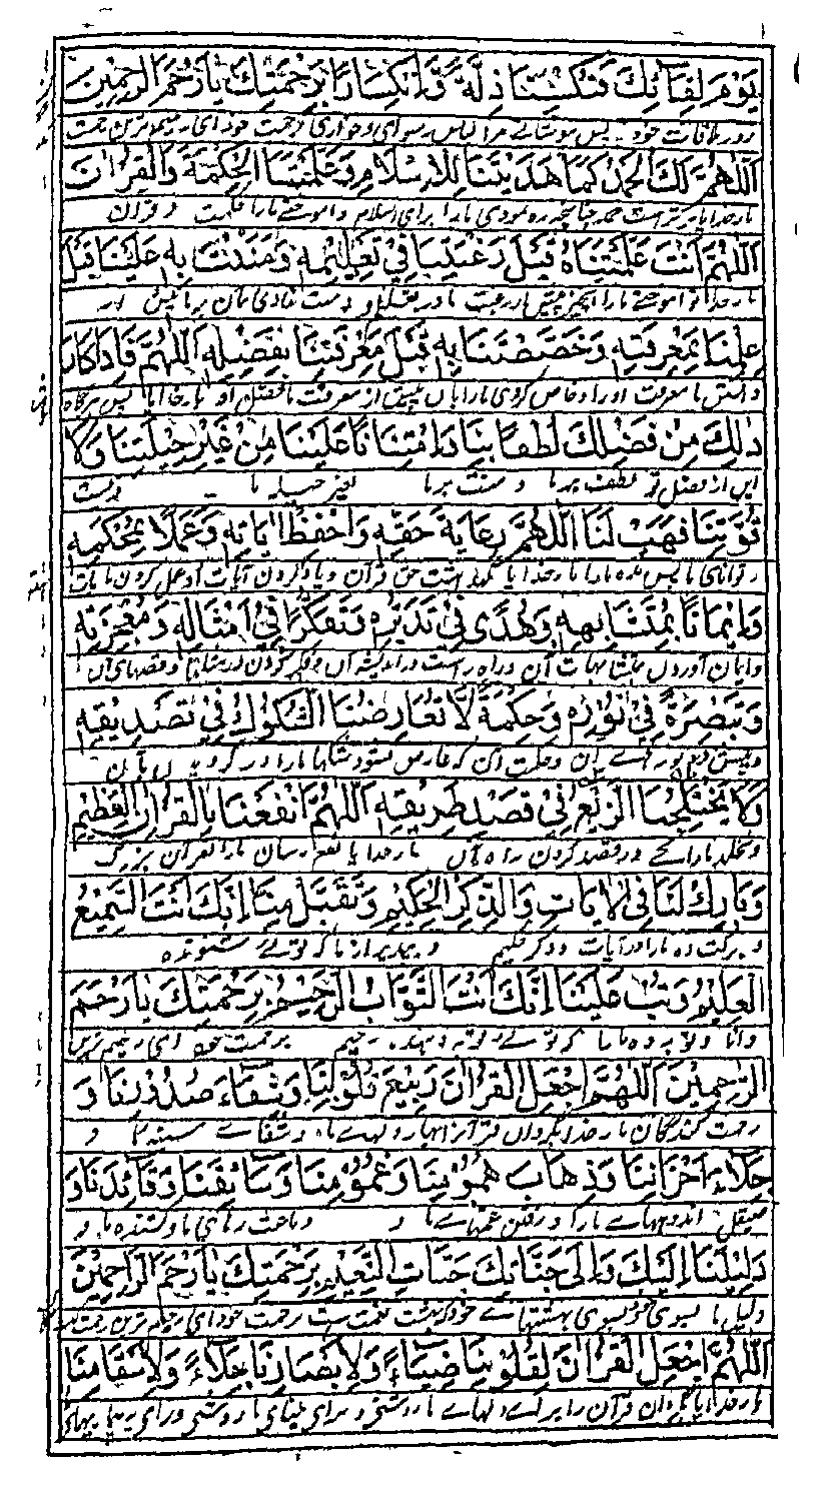 يَوْمَ لِقَائِكَ فَتَكْسُنَا ذِلَّةً وَانْكِسَارًا بِرَحْمَتِكَ يَا أَرْحَمَ الرَّاحِمِينَ
روز ملاقات خود پس رسوای و خواری رحمت خود ای
اَللّٰهُمَّ لَكَ الْحَمْدُ كَمَا هَدَيْتَنَا لِلْإِسْلَامِ وَعَلَّمْتَنَا الْحِكْمَةَ وَالْقُرْآنَ
بار خدایا مر تراست حمد چنانچه ره نمودی ما را برای اسلام و اموختی ما را حکمت و قرآن
اَللّٰهُمَّ اَنْتَ عَلَّمْتَنَاهُ قَبْلَ رَغْبَتِنَا فِي تَعْلِيْمِهِ وَمَنَنْتَ بِهِ عَلَيْنَا قَبْلَ
بار خدایا تو اموختی ما را پیش از رغبت ما در تعلیم او و منت نهادی بان بر ما پیش از
عِلْمِنَا بِمَعْرِفَتِهِ وَخَصَصْتَنَا بِهِ قَبْلَ مَعْرِفَتِنَا بِفَضْلِهِ اَللّٰهُمَّ فَاِذَا كَانَ
دانستن ما معرفت او را و خاص کردی ما را بان پیش از معرفت ما فضل او بار خدایا پس هرگاه
ذٰلِكَ مِنْ فَضْلِكَ لُطْفًا بِنَا وَامْتِنَانًا عَلَيْنَا مِنْ غَيْرِ حِيْلَتِنَا وَلَا
این از فضل تو لطف بر ما و منت بر ما بغیر حیله ما و نیست
قُوَّتِنَا فَهَبْ لَنَا اَللّٰهُمَّ رِعَايَةَ حَقِّهِ وَاحْفَظْ اٰيَاتِهِ وَعَمَلًا بِمُحْكَمِهِ
توانای ما پس بده ما را بار خدایا حق قرآن و یاد کردن آیات او عمل کردن
وَاِيْمَانًا بِمُتَشَابِهِهِ وَهُدًى فِي تَدَبُّرِهِ وَتَفَكُّرًا فِي اَمْثَالِهِ وَمُعْجِزَتِهِ
وایمان آوردن متشابهات آن و راه راست در اندیشه آن و فکر کردن در مثلها و قصهای آن
وَتَبْصِرَةً فِي نُوْرِهِ وَحِكْمَةً لَا تُعَارِضُنَا الشُّكُوْكُ فِي تَصْدِيْقِهِ
آن و حکمت آن که عارض نشود شکها ما را در
وَلَا يَخْتَلِجُنَا الزَّيْغُ فِي قَصْدِ طَرِيْقِهِ اَللّٰهُمَّ انْفَعْنَا بِالْقُرْاٰنِ الْعَظِيْمِ
در قصد کردن راه آن بار خدایا نفع رسان ما را بقرآن بزرگ
وَبَارِكْ لَنَا فِي الْاٰيَاتِ وَالذِّكْرِ الْحَكِيْمِ وَتَقَبَّلْ مِنَّا اِنَّكَ اَنْتَ السَّمِيْعُ
و برکت ده ما را در آیات و ذکر حکیم و بپذیر از ما که توئی شنونده
الْعَلِيْمُ وَتُبْ عَلَيْنَا اِنَّكَ اَنْتَ التَّوَّابُ الرَّحِيْمُ بِرَحْمَتِكَ يَا اَرْحَمَ
دانا و توبه ده ما را که توئی توبه دهنده رحیم برحمت خود ای رحیم ترین
الرَّاحِمِيْنَ اَللّٰهُمَّ اجْعَلِ الْقُرْاٰنَ رَبِيْعَ قُلُوْبِنَا وَشِفَاءَ صُدُوْرِنَا وَ
رحمت کنندگان بار خدایا بگردان قرآن را بهار دلهای ما و شفای سینه ما و
جَلَاءَ اَحْزَانِنَا وَذِهَابَ هُمُوْمِنَا وَغُمُوْمِنَا وَسَائِقَنَا وَقَائِدَنَا وَ
صیقل اندوههای ما را و رفتن غمهای ما و
دَلِيْلَنَا اِلَيْكَ وَاِلٰى جَنَّاتِكَ جَنَّاتِ النَّعِيْمِ بِرَحْمَتِكَ يَا اَرْحَمَ الرَّاحِمِيْنَ
دلیل ما بسوی خود و بسوی بهشتهای خود که بهشت نعمت است برحمت خود ای رحیم ترین
اَللّٰهُمَّ اجْعَلِ الْقُرْاٰنَ لِقُلُوْبِنَا ضِيَاءً وَلِاَبْصَارِنَا جَلَاءً وَلِاَسْقَامِنَا
بار خدایا بگردان قرآن را برای دلهای ما روشنی و برای بینای ما روشنی و برای بیماریهای